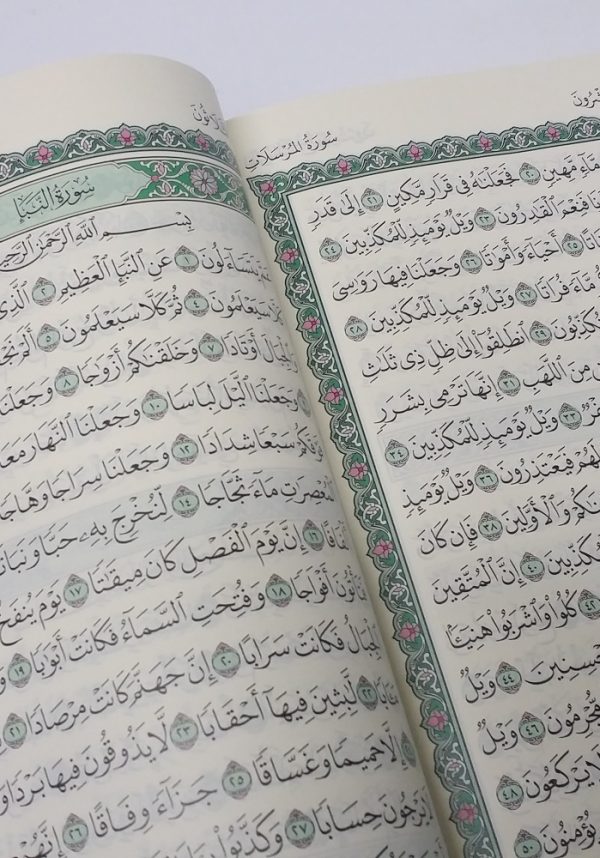 سُورَةُ المُرْسَلَاتِ
مَّآءٍ مَّهِينٍ ٢٠ فَجَعَلْنَٰهُ فِى قَرَارٍ مَّكِينٍ ٢١ إِلَىٰ قَدَرٍ
فَنِعْمَ ٱلْقَٰدِرُونَ ٢٣ وَيْلٌ يَوْمَئِذٍ لِّلْمُكَذِّبِينَ ٢٤
٢٥ أَحْيَآءً وَأَمْوَٰتًا ٢٦ وَجَعَلْنَا فِيهَا رَوَٰسِىَ
مَّآءً فُرَاتًا ٢٧ وَيْلٌ يَوْمَئِذٍ لِّلْمُكَذِّبِينَ ٢٨
٢٩ ٱنطَلِقُوٓا۟ إِلَىٰ ظِلٍّ ذِى ثَلَٰثِ
مِنَ ٱللَّهَبِ ٣١ إِنَّهَا تَرْمِى بِشَرَرٍ
٣٣ وَيْلٌ يَوْمَئِذٍ لِّلْمُكَذِّبِينَ ٣٤
لَهُمْ فَيَعْتَذِرُونَ ٣٦ وَيْلٌ يَوْمَئِذٍ
وَٱلْأَوَّلِينَ ٣٨ فَإِن كَانَ
٤٠ إِنَّ ٱلْمُتَّقِينَ
٤٢ كُلُوا۟ وَٱشْرَبُوا۟ هَنِيٓـَٔۢا
٤٤ وَيْلٌ
مُّجْرِمُونَ ٤٦ وَيْلٌ
لَا يَرْكَعُونَ ٤٨
٥٠
سُورَةُ النَّبَإِ
بِسْمِ ٱللَّهِ ٱلرَّحْمَٰنِ ٱلرَّحِيمِ
عَمَّ يَتَسَآءَلُونَ ١ عَنِ ٱلنَّبَإِ ٱلْعَظِيمِ ٢ ٱلَّذِى
كَلَّا سَيَعْلَمُونَ ٤ ثُمَّ كَلَّا سَيَعْلَمُونَ ٥ أَلَمْ
وَٱلْجِبَالَ أَوْتَادًا ٧ وَخَلَقْنَٰكُمْ أَزْوَٰجًا ٨ وَجَعَلْنَا
وَجَعَلْنَا ٱلَّيْلَ لِبَاسًا ١٠ وَجَعَلْنَا ٱلنَّهَارَ
فَوْقَكُمْ سَبْعًا شِدَادًا ١٢ وَجَعَلْنَا سِرَاجًا وَهَّاجًا
ٱلْمُعْصِرَٰتِ مَآءً ثَجَّاجًا ١٤ لِّنُخْرِجَ بِهِۦ حَبًّا وَنَبَاتًا
أَلْفَافًا ١٦ إِنَّ يَوْمَ ٱلْفَصْلِ كَانَ مِيقَٰتًا ١٧ يَوْمَ يُنفَخُ
فَتَأْتُونَ أَفْوَاجًا ١٨ وَفُتِحَتِ ٱلسَّمَآءُ فَكَانَتْ أَبْوَٰبًا ١٩
ٱلْجِبَالُ فَكَانَتْ سَرَابًا ٢٠ إِنَّ جَهَنَّمَ كَانَتْ مِرْصَادًا ٢١
٢٢ لَّٰبِثِينَ فِيهَآ أَحْقَابًا ٢٣ لَّا يَذُوقُونَ فِيهَا بَرْدًا وَ
إِلَّا حَمِيمًا وَغَسَّاقًا ٢٥ جَزَآءً وِفَاقًا ٢٦ إِنَّهُمْ
يَرْجُونَ حِسَابًا ٢٧ وَكَذَّبُوا۟